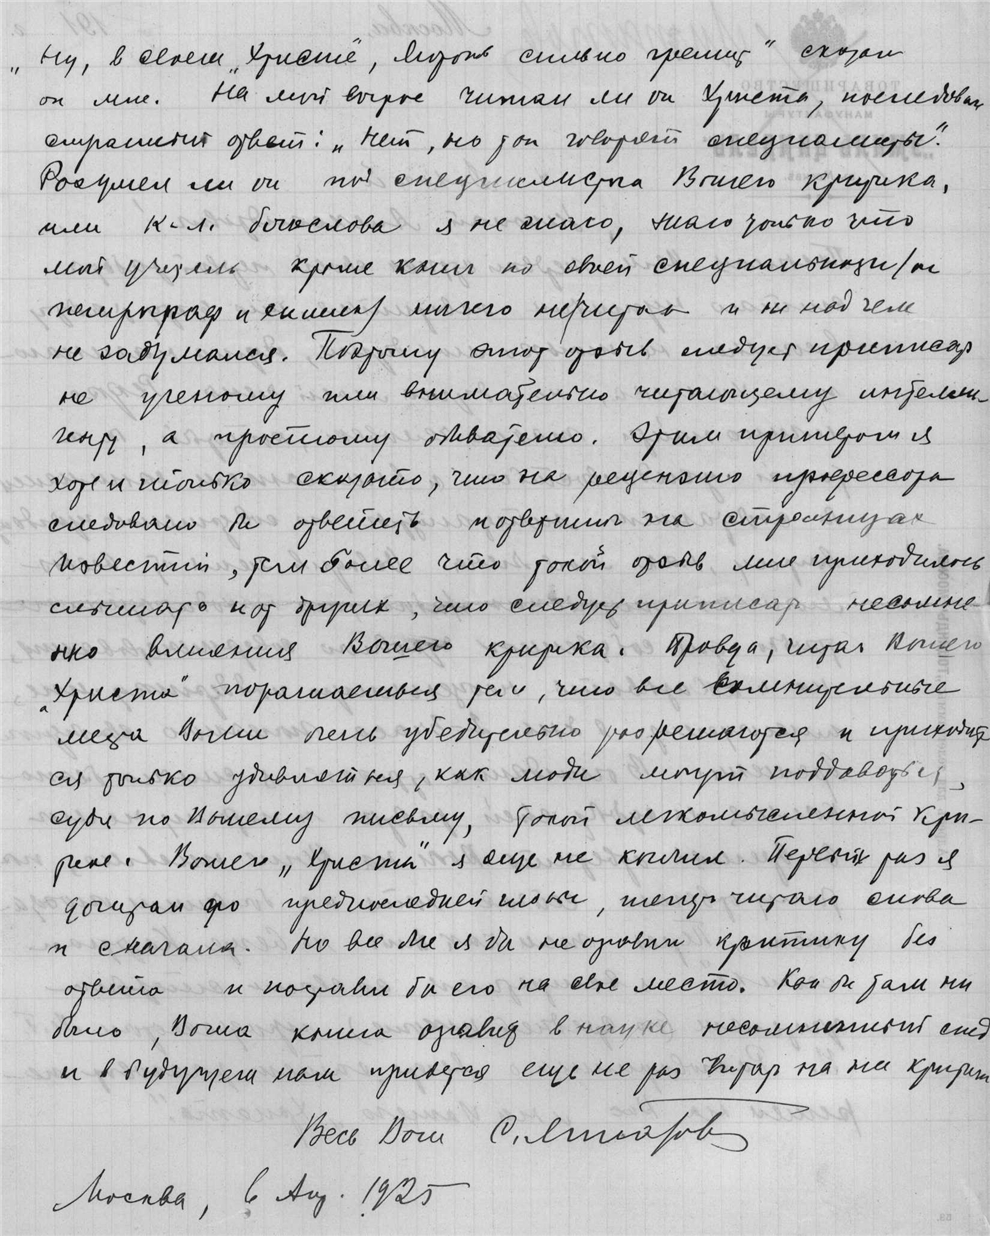 „Ну, в своем „Христе", Морозов сильно грешит" сказал
он мне. На мой вопрос читал ли он Христа, последовал
ответ: „Нет, но так говорят специалисты".
Разумел ли он под специалистом Вашего критика,
или к.-л. богослова я не знаю, знаю только что
мой учитель кроме книг по своей специальности /он
петрограф и химик/ ничего не читал и ни над чем
не задумался. Поэтому этот отзыв следует приписать
не ученому или внимательно читающему интелли-
генту, а простому обывателю. Этим примером я
хотел только сказать, что на рецензию профессора
следовало бы ответить и ответить на страницах
Известий, тем более что такой отзыв мне приходилось
слышать и от других, что следует приписать несомне
нно влиянию Вашего критика. Правда, читая Вашего
„Христа" поражаешься тем, что все сомнительные
места Вами очень убедительно разрешаются и приходит
ся только удивляться, как люди могут поддаваться,
судя по Вашему письму, такой легкомысленной кри-
тике. Вашего „Христа" я еще не кончил. Первый раз я
дочитал до предпоследней главы, теперь читаю снова
и сначала. Но все же я бы не оставил критику без
ответа и поставил бы его на свое место. Как бы там ни
было, Ваша книга оставит в науке несомненный след
и в будущем нам придется еще не раз читать на нее критики
Весь Ваш С.
Москва, 6 Апр. 1925